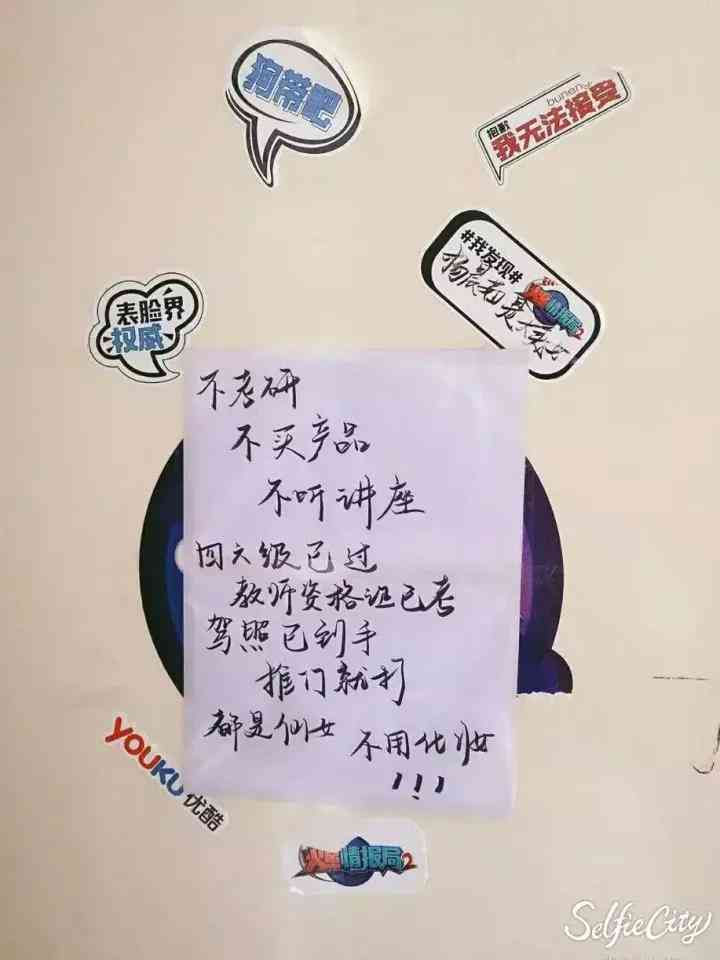 狗带吧
bunen
抱歉
我无法接受
#我发现#
火星情报局2
表脸界
权威
不考研
不买产品
不听讲座
四六级已过
教师资格证已考
驾照已到手
推门就打
都是仙女 不用化妆
!!!
YOUKU 优酷
火星情报局2
SelfieCity